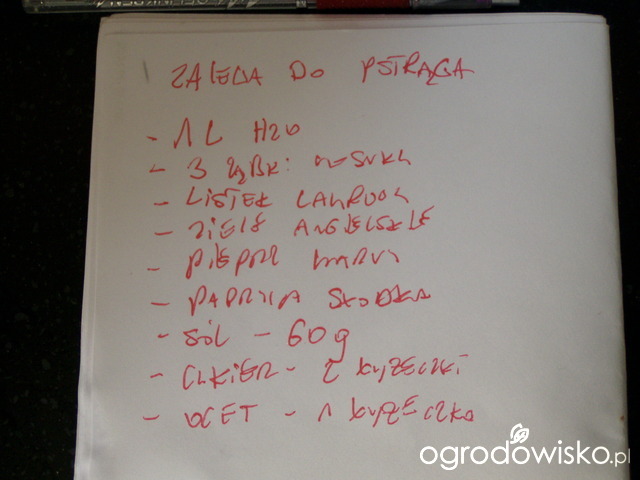 ZALEWA DO PSTRĄGA
- 1 L H2O
- 3 ZĄBKI CZOSNKU
- LISTEK LAUROWY
- ZIELE ANGIELSKIE
- PIEPRZ CZARNY
- PAPRYKA SŁODKA
- SÓL - 60 g
- CUKIER - 2 ŁYŻECZKI
- OCET - 1 ŁYŻECZKA
ogrodowisko.pl